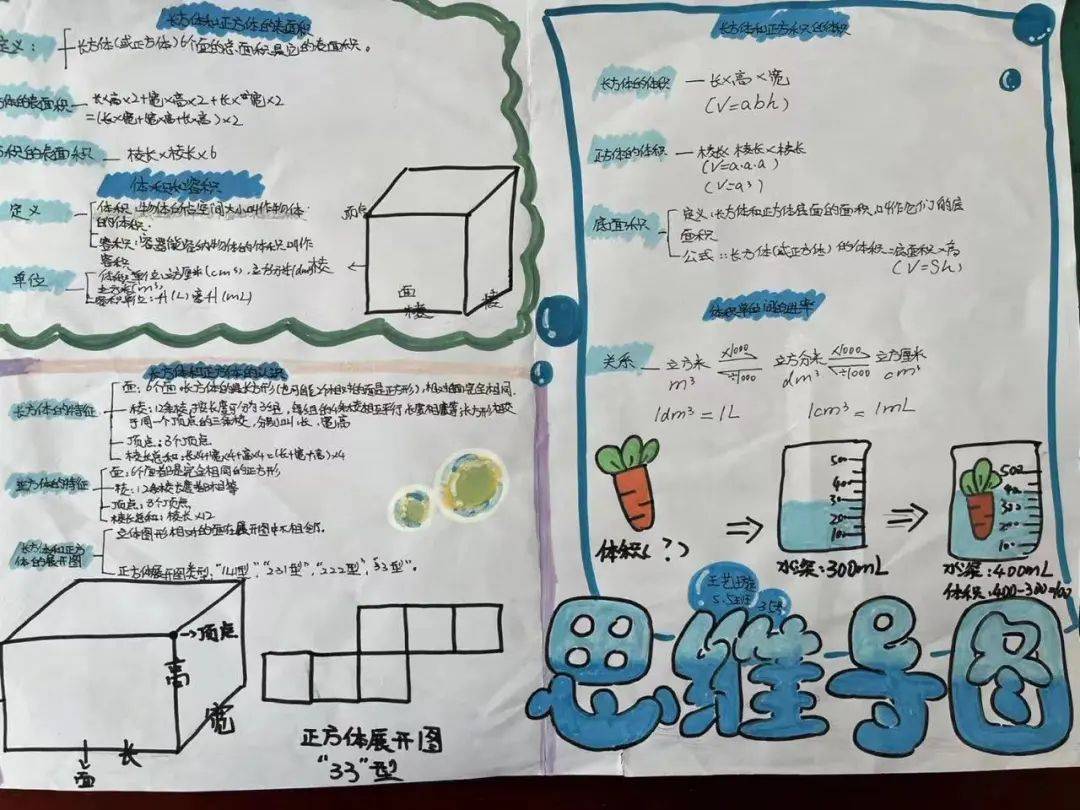 长方体和正方体的表面积
定义：
长方体(或正方体)6个面的总面积是它的表面积。
方体的表面积
长×高×2+宽×高×2+长×宽×2
=(长×宽+宽×高+长×高)×2
的表面积
棱长×棱长×6
体积和容积
定义
体积：物体所占空间大小叫作物体
的体积.
容积：容器能容纳物体的体积叫作
容积
单位
体积单位：立方厘米(cm³)，立方分米(dm³)
立方米(m³)
容积单位：升(L) 毫升(mL)
顶点
棱
面
棱
棱
长方体和正方体的认识
长方体的特征
面：6个面 长方体的是长方形(也可能2个相对的面是正方形)，相对面完全相同.
棱：12条棱,按长度可分为3组，每组的4条棱相互平行
于同一个顶点的三条棱，分别叫长、宽、高
顶点：8个顶点
棱长总和：长×4+宽×4+高×4=(长+宽+高)×4
正方体的特征
面：6个面都是完全相同的正方形
棱：12条棱长度都相等
顶点：8个顶点
棱长总和：棱长×12
长方体和正方
体的展开图
立体图形相对的面在展开图中不相邻.
正方体展开图类型："141型"，"231型"，"222型"，"33型".
→顶点
高
宽
长
面
正方体展开图
"33"型
长方体和正方体的体积
长方体的体积
长×高×宽
(V=abh)
正方体的体积
棱长×棱长×棱长
(V=a.a.a)
(V=a³)
底面积
定义：长方体和正方体底面的面积,叫作它们的底
面积
公式：长方体(或正方体)的体积=底面积×高
(V=Sh)
体积单位间的进率
关系
立方米 ×1000 立方分米 ×1000 立方厘米
m³ ÷1000 dm³ ÷1000 cm³
1dm³=1L 1cm³=1mL
体积(?)
500
400
300
200
100
水深:300mL
500
400
300
200
100
水深:400mL
体积:400-300=100
5.5班
35号
思维导图